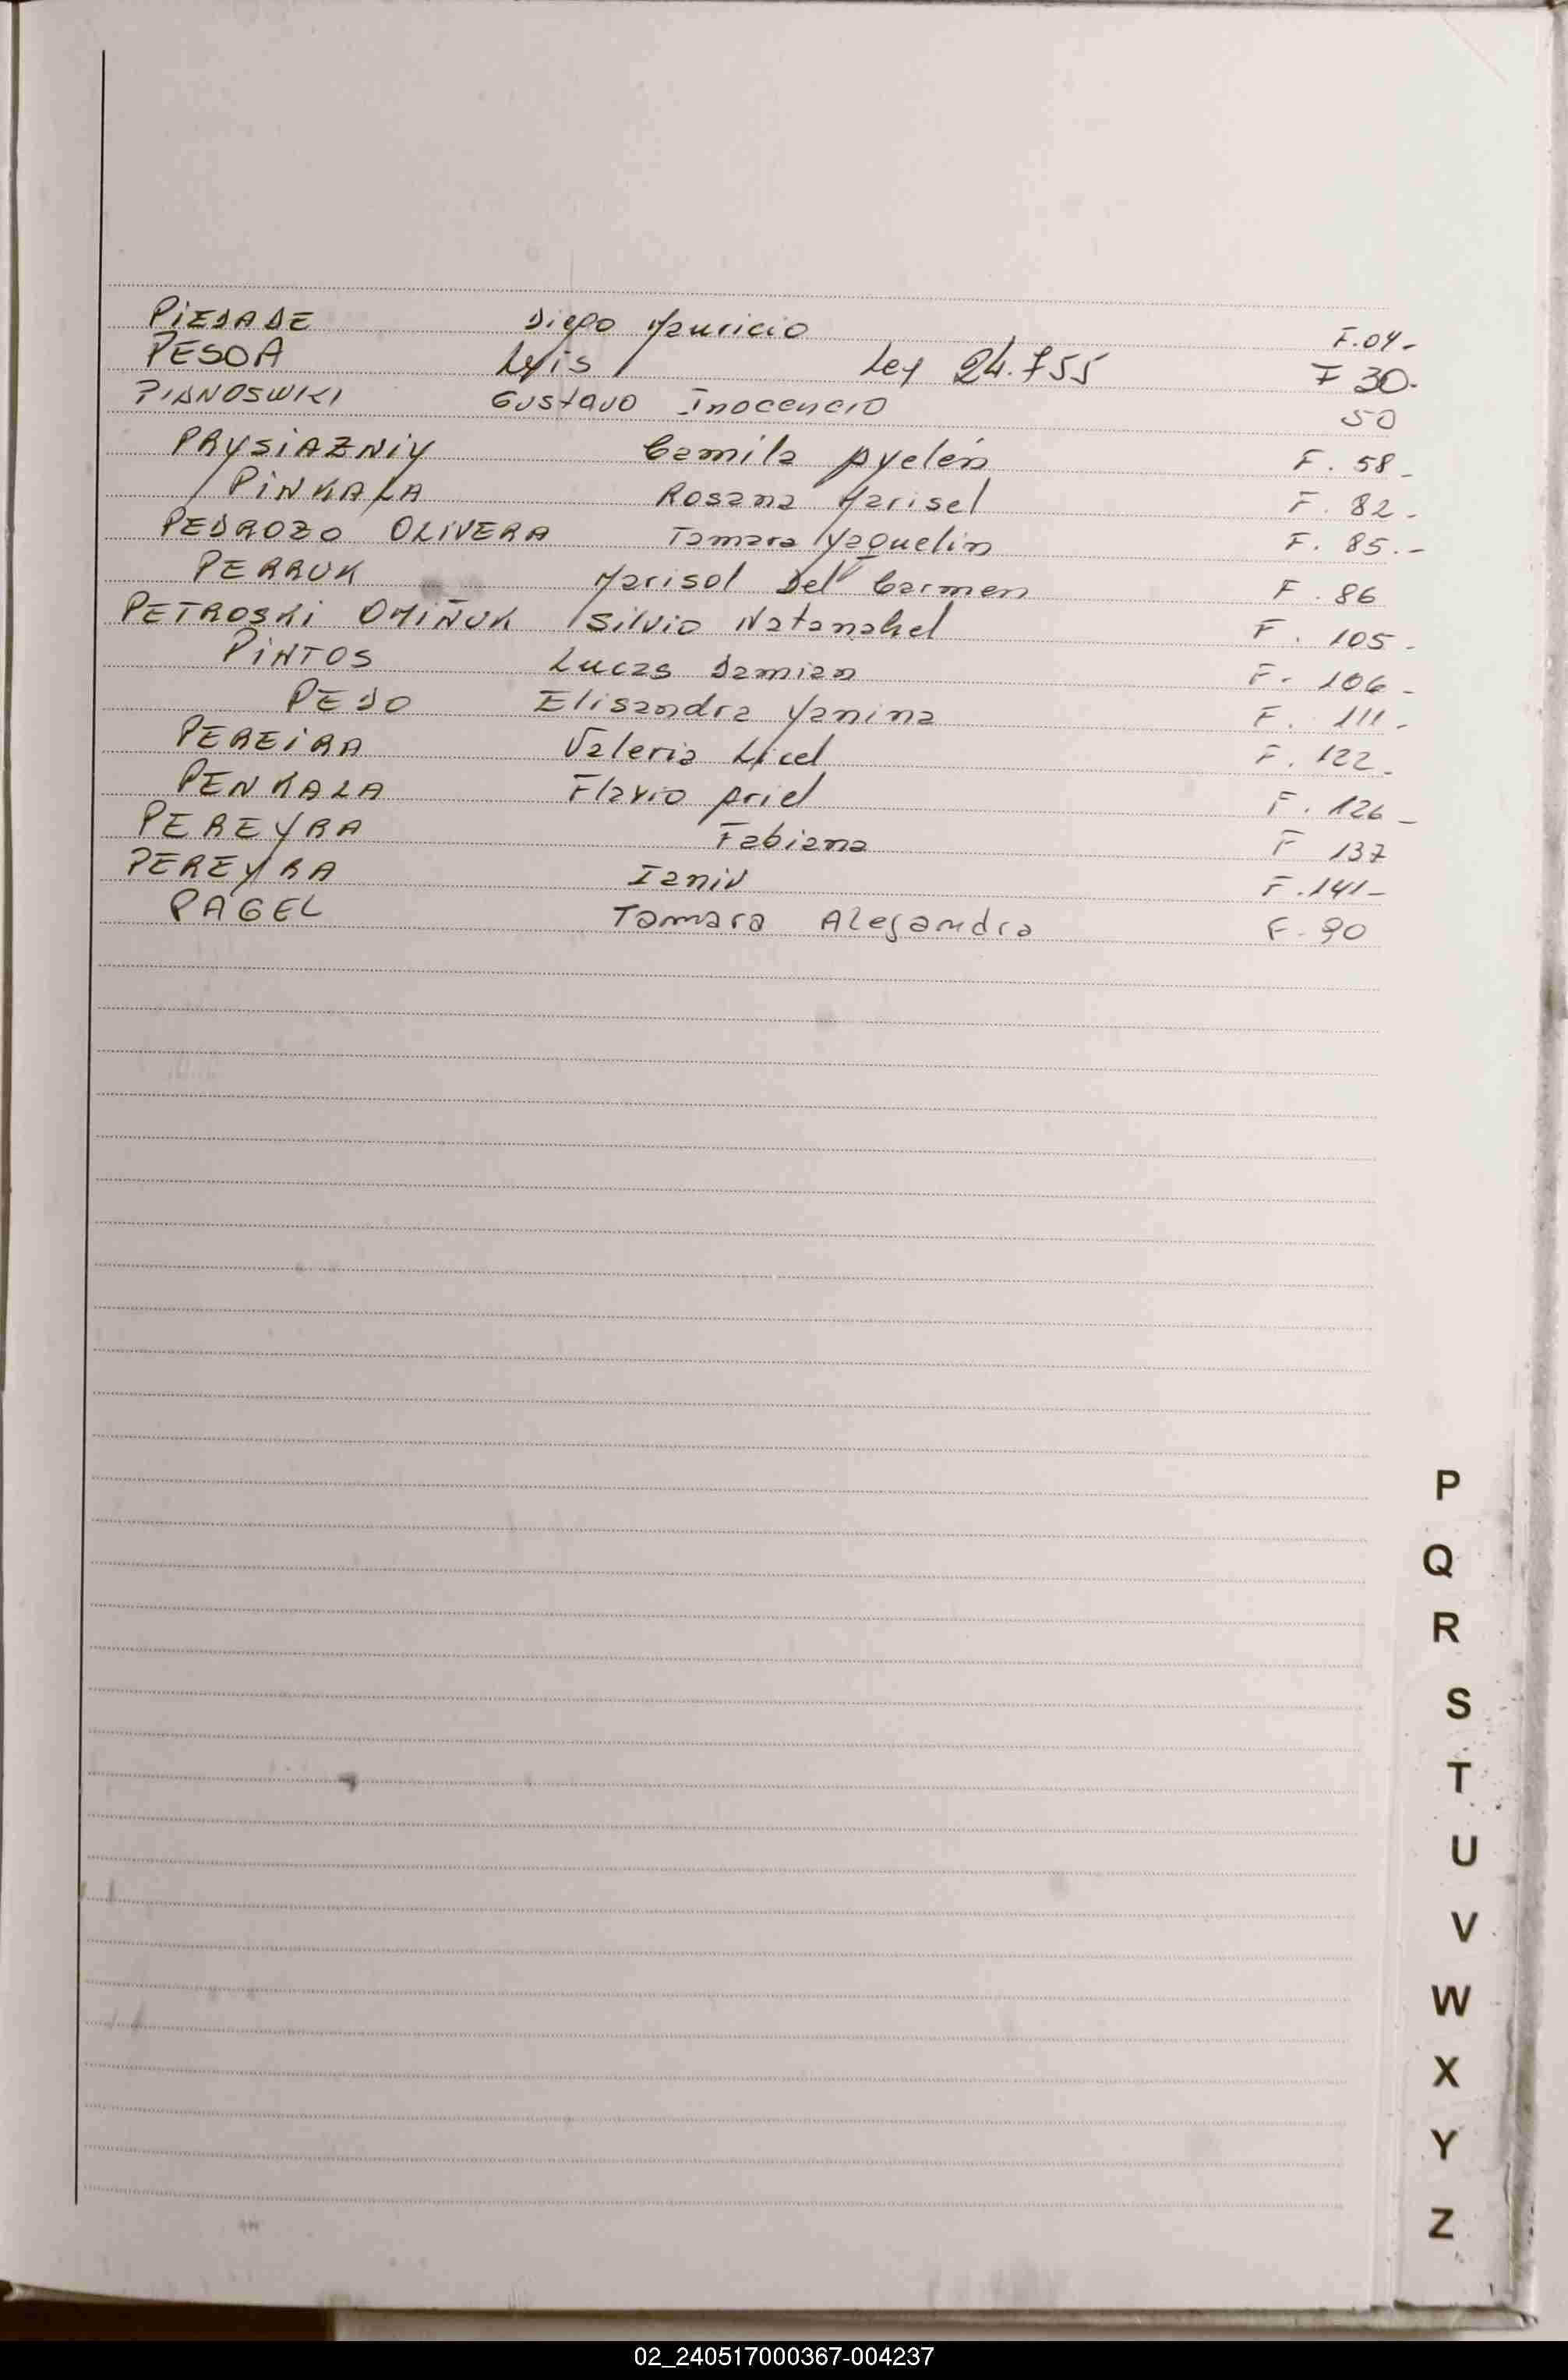 PiEDADE Diego Mauricio F.04-
PESOA Luis Ley 24.755 F 30-
PIANOSWKI Gustavo Inocencio 50
PRYSiAZNiY Camila Ayelén F. 58-
PiNKALA Rosana Marisel F. 82-
PEDROZO OLIVERA Tamara Yaquelin F. 85.-
PERRUK Marisol Del Carmen F. 86
PETROSKi OMIÑUK Silvio Natanahel F. 105-
PiNTOS Lucas Damian F. 106-
PEDO Elisandra Yanina F. 111-
PEREiRA Valeria Licel F. 122-
PENKALA Flavio Ariel F. 126-
PEREYRA Fabiana F 137
PEREYRA Ianiv F.141-
PAGEL Tamara Alejandra F. 90
P
Q
R
S
T
U
V
W
X
Y
Z
02_240517000367-004237